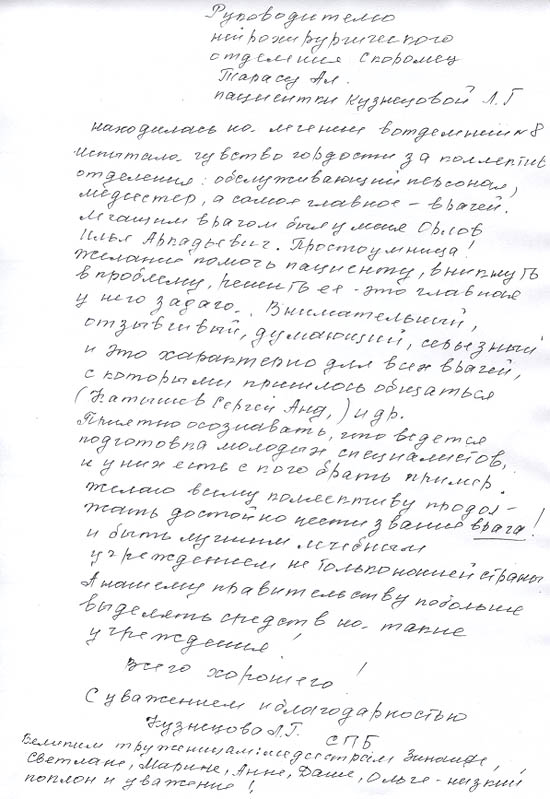 Руководителю
нейрохирургического
отделения Скоромец
Тарасу Ал.
пациентки Кузнецовой Л.Г
находилась на лечении в отделении №8
Испытала чувство гордости за коллектив
отделения: обслуживающий персонал,
медсестер, а самое главное – врачей.
Лечащим врачом был у меня Орлов
Илья Аркадьевич. Просто умница!
Желание помочь пациенту, вникнуть
в проблему, решить ее – это главная
у него задача. Внимательный,
отзывчивый, думающий, серьезный
и это характерно для всех врачей,
с которыми пришлось общаться
( Сергей Анд,) и др.
Приятно осознавать, что ведется
подготовка молодых специалистов,
и у них есть с кого брать пример.
Желаю всему коллективу продол-
жать достойно нести звание врача!
и быть лучшим лечебным
учреждением не только нашей страны
А нашему правительству побольше
выделять средств на такие
учреждения!
Всего хорошего!
С уважением и благодарностью
Кузнецова Л.Г. СПБ
Великим труженицам: медсестрам Зинаиде,
Светлане, Марине, Анне, Даше, Ольге – низкий
поклон и уважение!